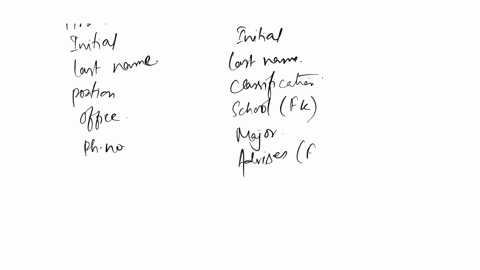 Initial
last name.
position
office.
Ph.no
Initial
last name.
Classification.
School (FK)
Major.
Advises (F